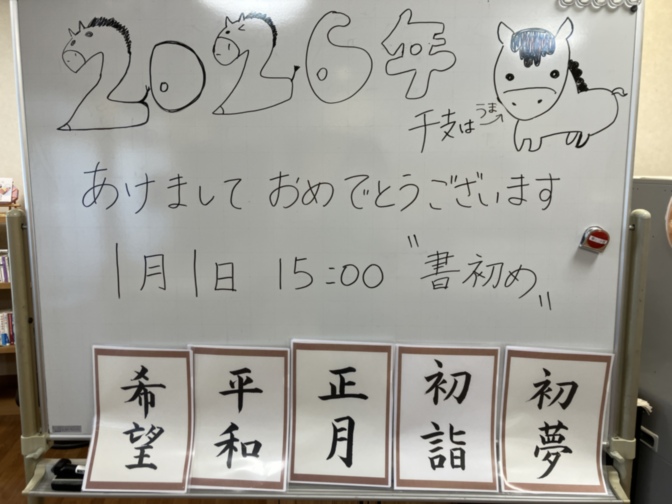 2026年
干支は
うま
あけまして おめでとうございます
1月1日 15:00 〝書初め〟
希望
平和
正月
初詣
初夢